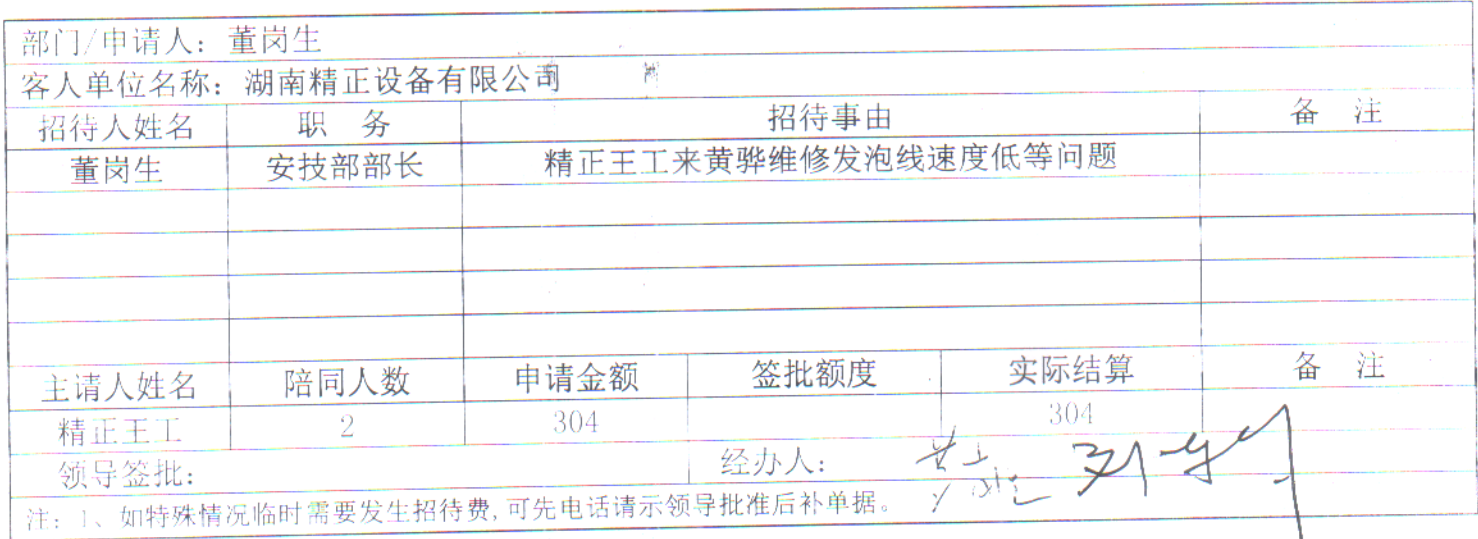 部门/申请人：董岗生
客人单位名称：湖南精正设备有限公司
招待人姓名 职 务 招待事由 备 注
董岗生 安技部部长 精正王工来黄骅维修发泡线速度低等问题
主请人姓名 陪同人数 申请金额 签批额度 实际结算 备 注
精正王工 2 304 304
领导签批： 经办人：
注：1、如特殊情况临时需要发生招待费,可先电话请示领导批准后补单据。